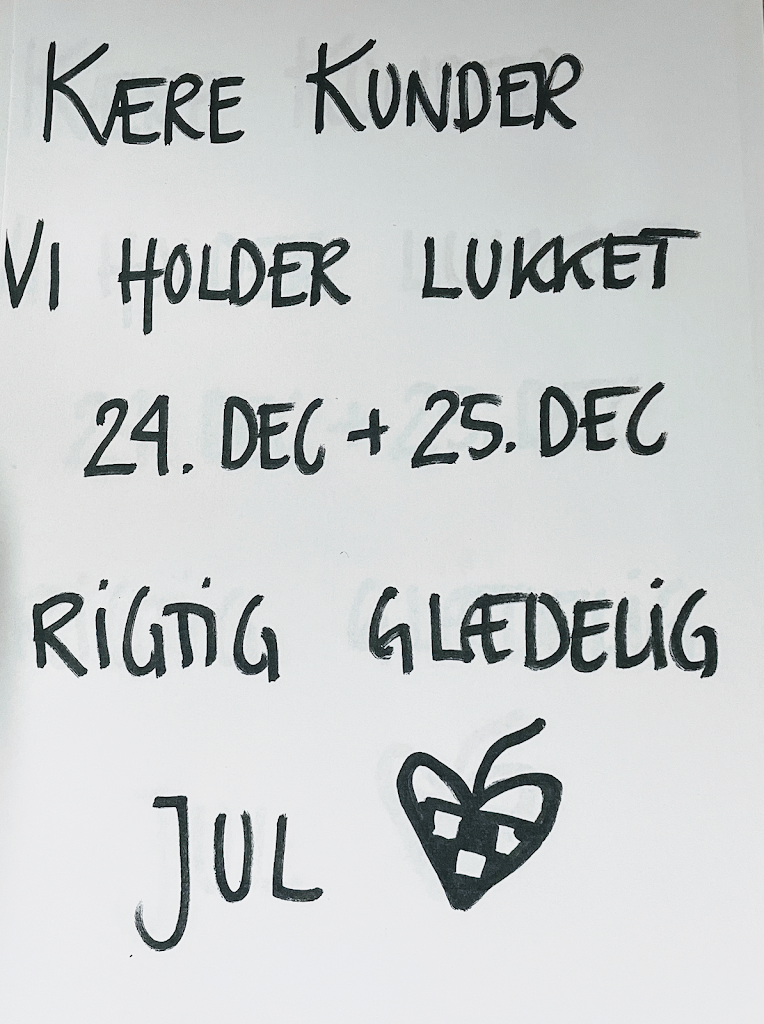 KÆRE KUNDER
VI HOLDER LUKKET
24. DEC + 25. DEC
RIGTIG GLÆDELIG
JUL